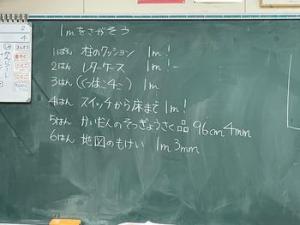 1mをさがそう
1ぱん 柱のクッション 1m!
2はん レターケース 1m!
3はん (くつばこ4こ) 1m
4はん スイッチから床まで 1m!
5はん かいだんのそつぎょうさく品 96cm4mm
6ぱん 地図のもけい 1m3mm